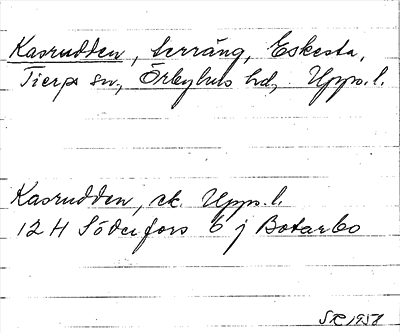 Kasrudden, terräng, Eskesta,
Tierps sn, Örbyhus hd, Upps. l.
Kasrudden, ek. Upps. l.
12 H Söderfors 6 j Botarbo
SR 1957